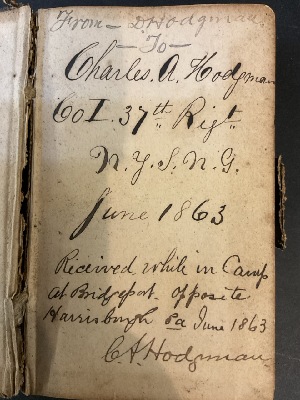 From - D Hodgman
- To -
Charles. A. Hodgman
Co I. 37th Rigt.
N. Y. S. N. G.
June 1863
Received while in Camp
at Bridgeport. opposite
Harrisburgh Pa June 1863
C. A. Hodgman